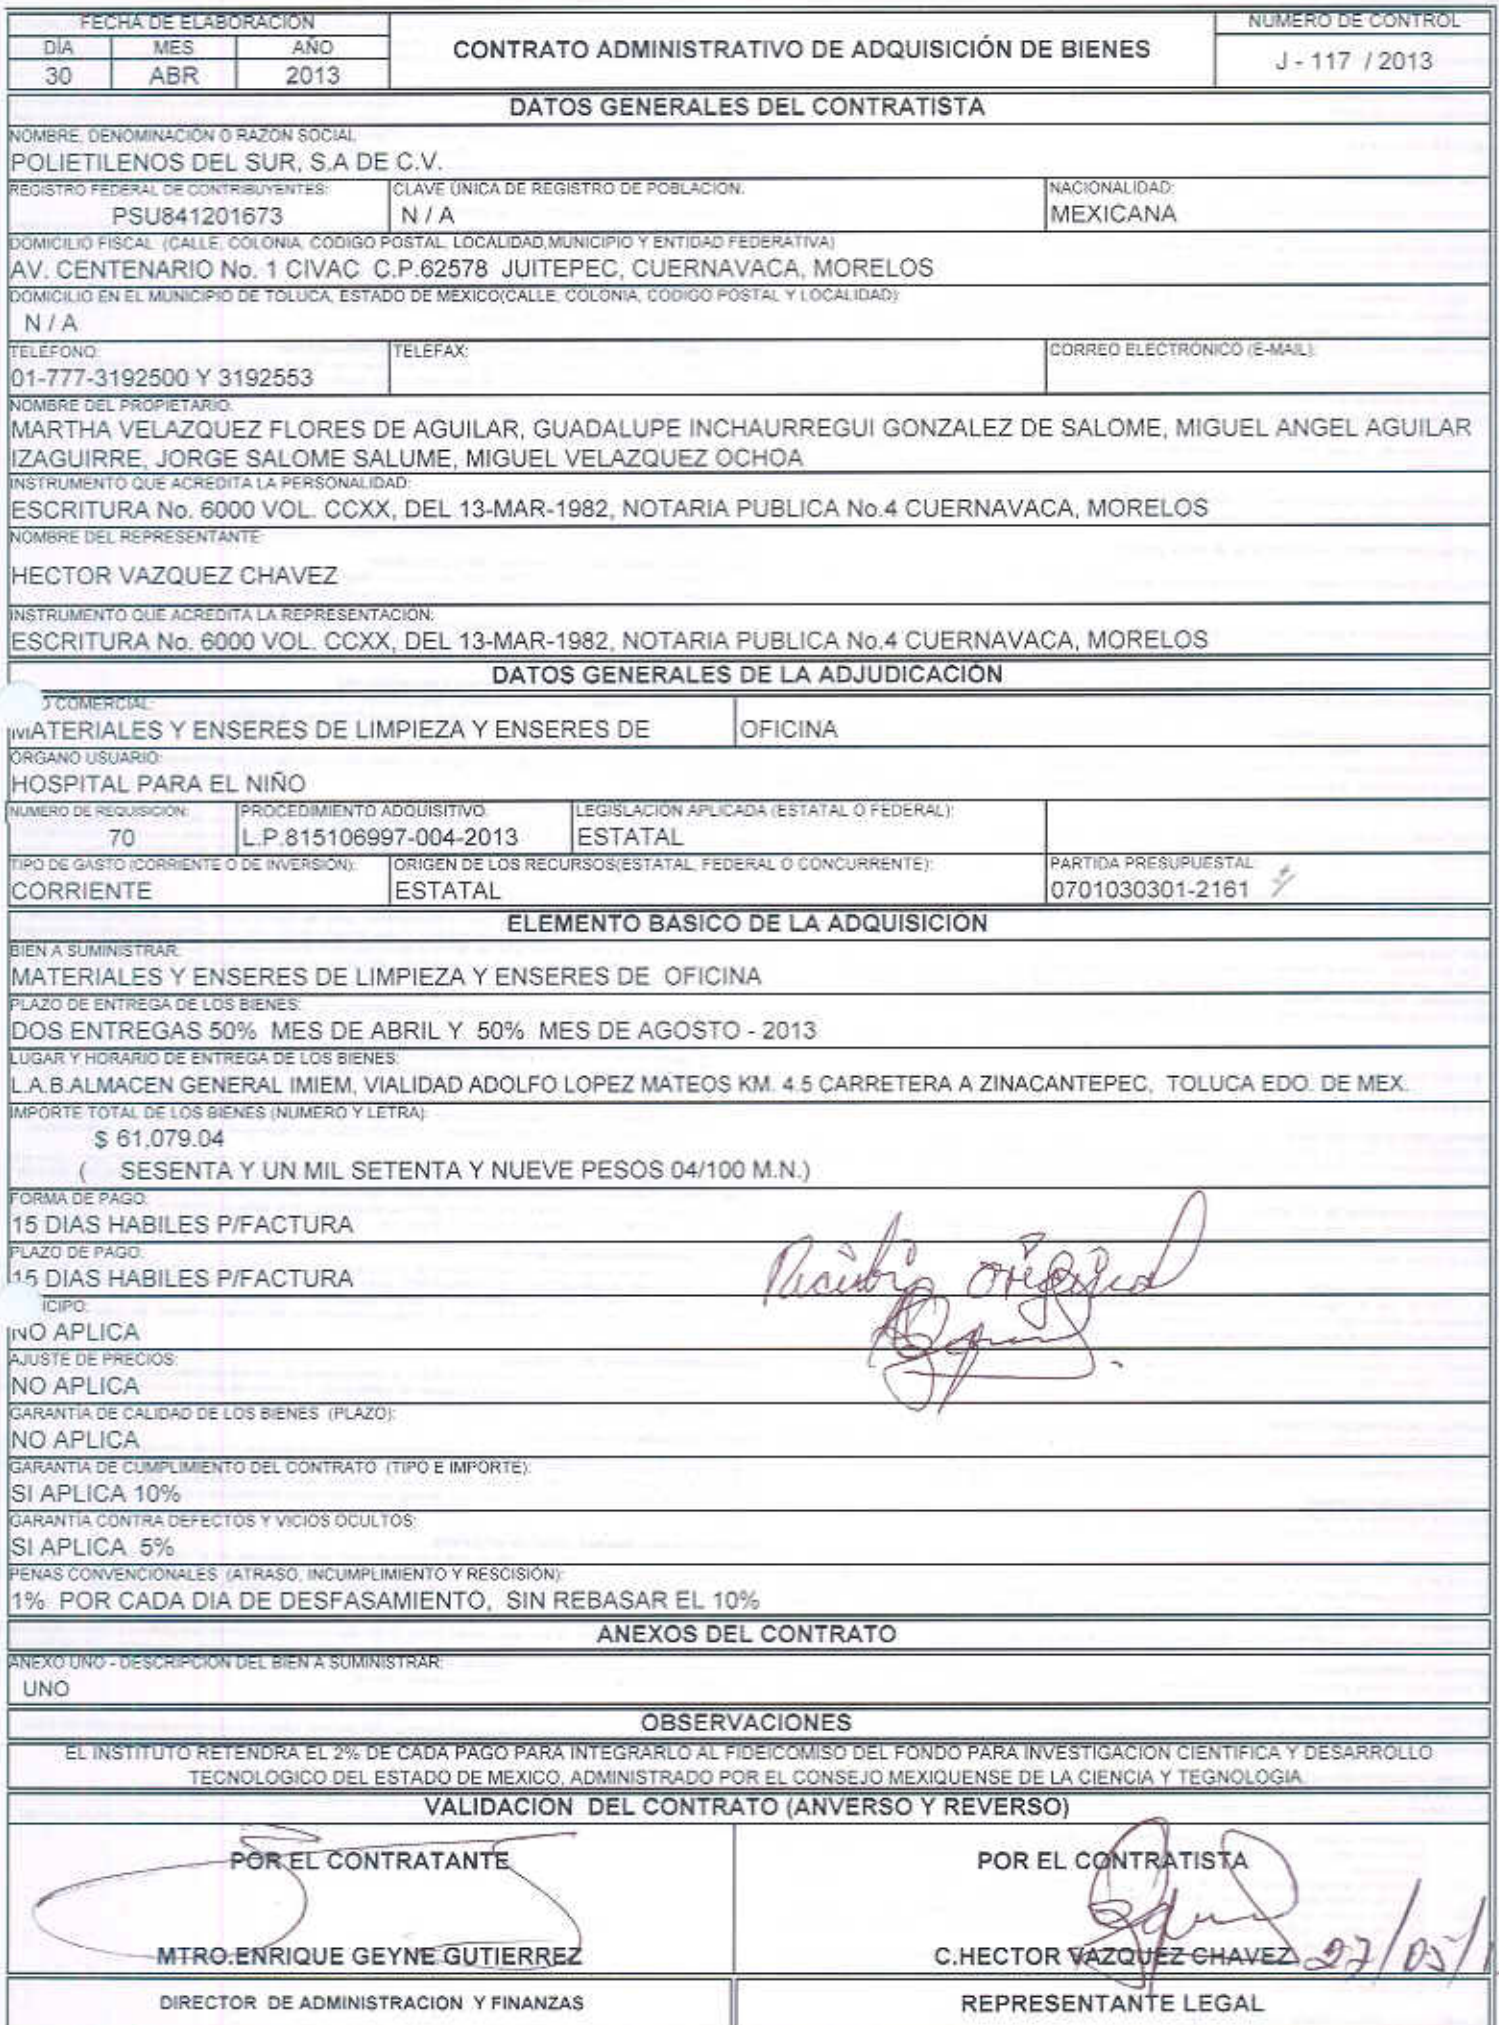 FECHA DE ELABORACIÓN
DÍA MES AÑO
30 ABR 2013
CONTRATO ADMINISTRATIVO DE ADQUISICIÓN DE BIENES
NUMERO DE CONTROL
J - 117 / 2013
DATOS GENERALES DEL CONTRATISTA
NOMBRE, DENOMINACIÓN O RAZON SOCIAL
POLIETILENOS DEL SUR, S.A DE C.V.
REGISTRO FEDERAL DE CONTRIBUYENTES: CLAVE ÚNICA DE REGISTRO DE POBLACIÓN. NACIONALIDAD:
PSU841201673 N / A MEXICANA
DOMICILIO FISCAL (CALLE, COLONIA, CODIGO POSTAL, LOCALIDAD,MUNICIPIO Y ENTIDAD FEDERATIVA)
AV. CENTENARIO No. 1 CIVAC C.P.62578 JUITEPEC, CUERNAVACA, MORELOS
DOMICILIO EN EL MUNICIPIO DE TOLUCA, ESTADO DE MEXICO(CALLE, COLONIA, CODIGO POSTAL Y LOCALIDAD):
N / A
TELEFONO: TELEFAX: CORREO ELECTRONICO (E-MAIL):
01-777-3192500 Y 3192553
NOMBRE DEL PROPIETARIO:
MARTHA VELAZQUEZ FLORES DE AGUILAR, GUADALUPE INCHAURREGUI GONZALEZ DE SALOME, MIGUEL ANGEL AGUILAR
IZAGUIRRE, JORGE SALOME SALUME, MIGUEL VELAZQUEZ OCHOA
INSTRUMENTO QUE ACREDITA LA PERSONALIDAD:
ESCRITURA No. 6000 VOL. CCXX, DEL 13-MAR-1982, NOTARIA PUBLICA No.4 CUERNAVACA, MORELOS
NOMBRE DEL REPRESENTANTE
HECTOR VAZQUEZ CHAVEZ
INSTRUMENTO QUE ACREDITA LA REPRESENTACIÓN:
ESCRITURA No. 6000 VOL. CCXX, DEL 13-MAR-1982, NOTARIA PUBLICA No.4 CUERNAVACA, MORELOS
DATOS GENERALES DE LA ADJUDICACIÓN
COMERCIAL:
MATERIALES Y ENSERES DE LIMPIEZA Y ENSERES DE OFICINA
ÓRGANO USUARIO:
HOSPITAL PARA EL NIÑO
NUMERO DE REQUISICIÓN: PROCEDIMIENTO ADQUISITIVO. LEGISLACIÓN APLICADA (ESTATAL O FEDERAL):
70 L.P.815106997-004-2013 ESTATAL
TIPO DE GASTO (CORRIENTE O DE INVERSIÓN): ORIGEN DE LOS RECURSOS(ESTATAL, FEDERAL O CONCURRENTE): PARTIDA PRESUPUESTAL
CORRIENTE ESTATAL 0701030301-2161
ELEMENTO BASICO DE LA ADQUISICIÓN
BIEN A SUMINISTRAR.
MATERIALES Y ENSERES DE LIMPIEZA Y ENSERES DE OFICINA
PLAZO DE ENTREGA DE LOS BIENES:
DOS ENTREGAS 50% MES DE ABRIL Y 50% MES DE AGOSTO - 2013
LUGAR Y HORARIO DE ENTREGA DE LOS BIENES:
L.A.B.ALMACEN GENERAL IMIEM, VIALIDAD ADOLFO LOPEZ MATEOS KM. 4.5 CARRETERA A ZINACANTEPEC, TOLUCA EDO. DE MEX.
IMPORTE TOTAL DE LOS BIENES (NUMERO Y LETRA):
$ 61,079.04
( SESENTA Y UN MIL SETENTA Y NUEVE PESOS 04/100 M.N.)
FORMA DE PAGO:
15 DIAS HABILES P/FACTURA
PLAZO DE PAGO:
15 DIAS HABILES P/FACTURA
Recibió original
ICIPO:
NO APLICA
AJUSTE DE PRECIOS:
NO APLICA
GARANTÍA DE CALIDAD DE LOS BIENES (PLAZO):
NO APLICA
GARANTIA DE CUMPLIMIENTO DEL CONTRATO (TIPO E IMPORTE):
SI APLICA 10%
GARANTÍA CONTRA DEFECTOS Y VICIOS OCULTOS:
SI APLICA 5%
PENAS CONVENCIONALES (ATRASO, INCUMPLIMIENTO Y RESCISIÓN):
1% POR CADA DIA DE DESFASAMIENTO, SIN REBASAR EL 10%
ANEXOS DEL CONTRATO
ANEXO UNO - DESCRIPCIÓN DEL BIEN A SUMINISTRAR:
UNO
OBSERVACIONES
EL INSTITUTO RETENDRA EL 2% DE CADA PAGO PARA INTEGRARLO AL FIDEICOMISO DEL FONDO PARA INVESTIGACION CIENTIFICA Y DESARROLLO
TECNOLOGICO DEL ESTADO DE MEXICO, ADMINISTRADO POR EL CONSEJO MEXIQUENSE DE LA CIENCIA Y TEGNOLOGIA.
VALIDACIÓN DEL CONTRATO (ANVERSO Y REVERSO)
POR EL CONTRATANTE POR EL CONTRATISTA
MTRO.ENRIQUE GEYNE GUTIERREZ C.HECTOR VAZQUEZ CHAVEZ 27/05/1
DIRECTOR DE ADMINISTRACION Y FINANZAS REPRESENTANTE LEGAL